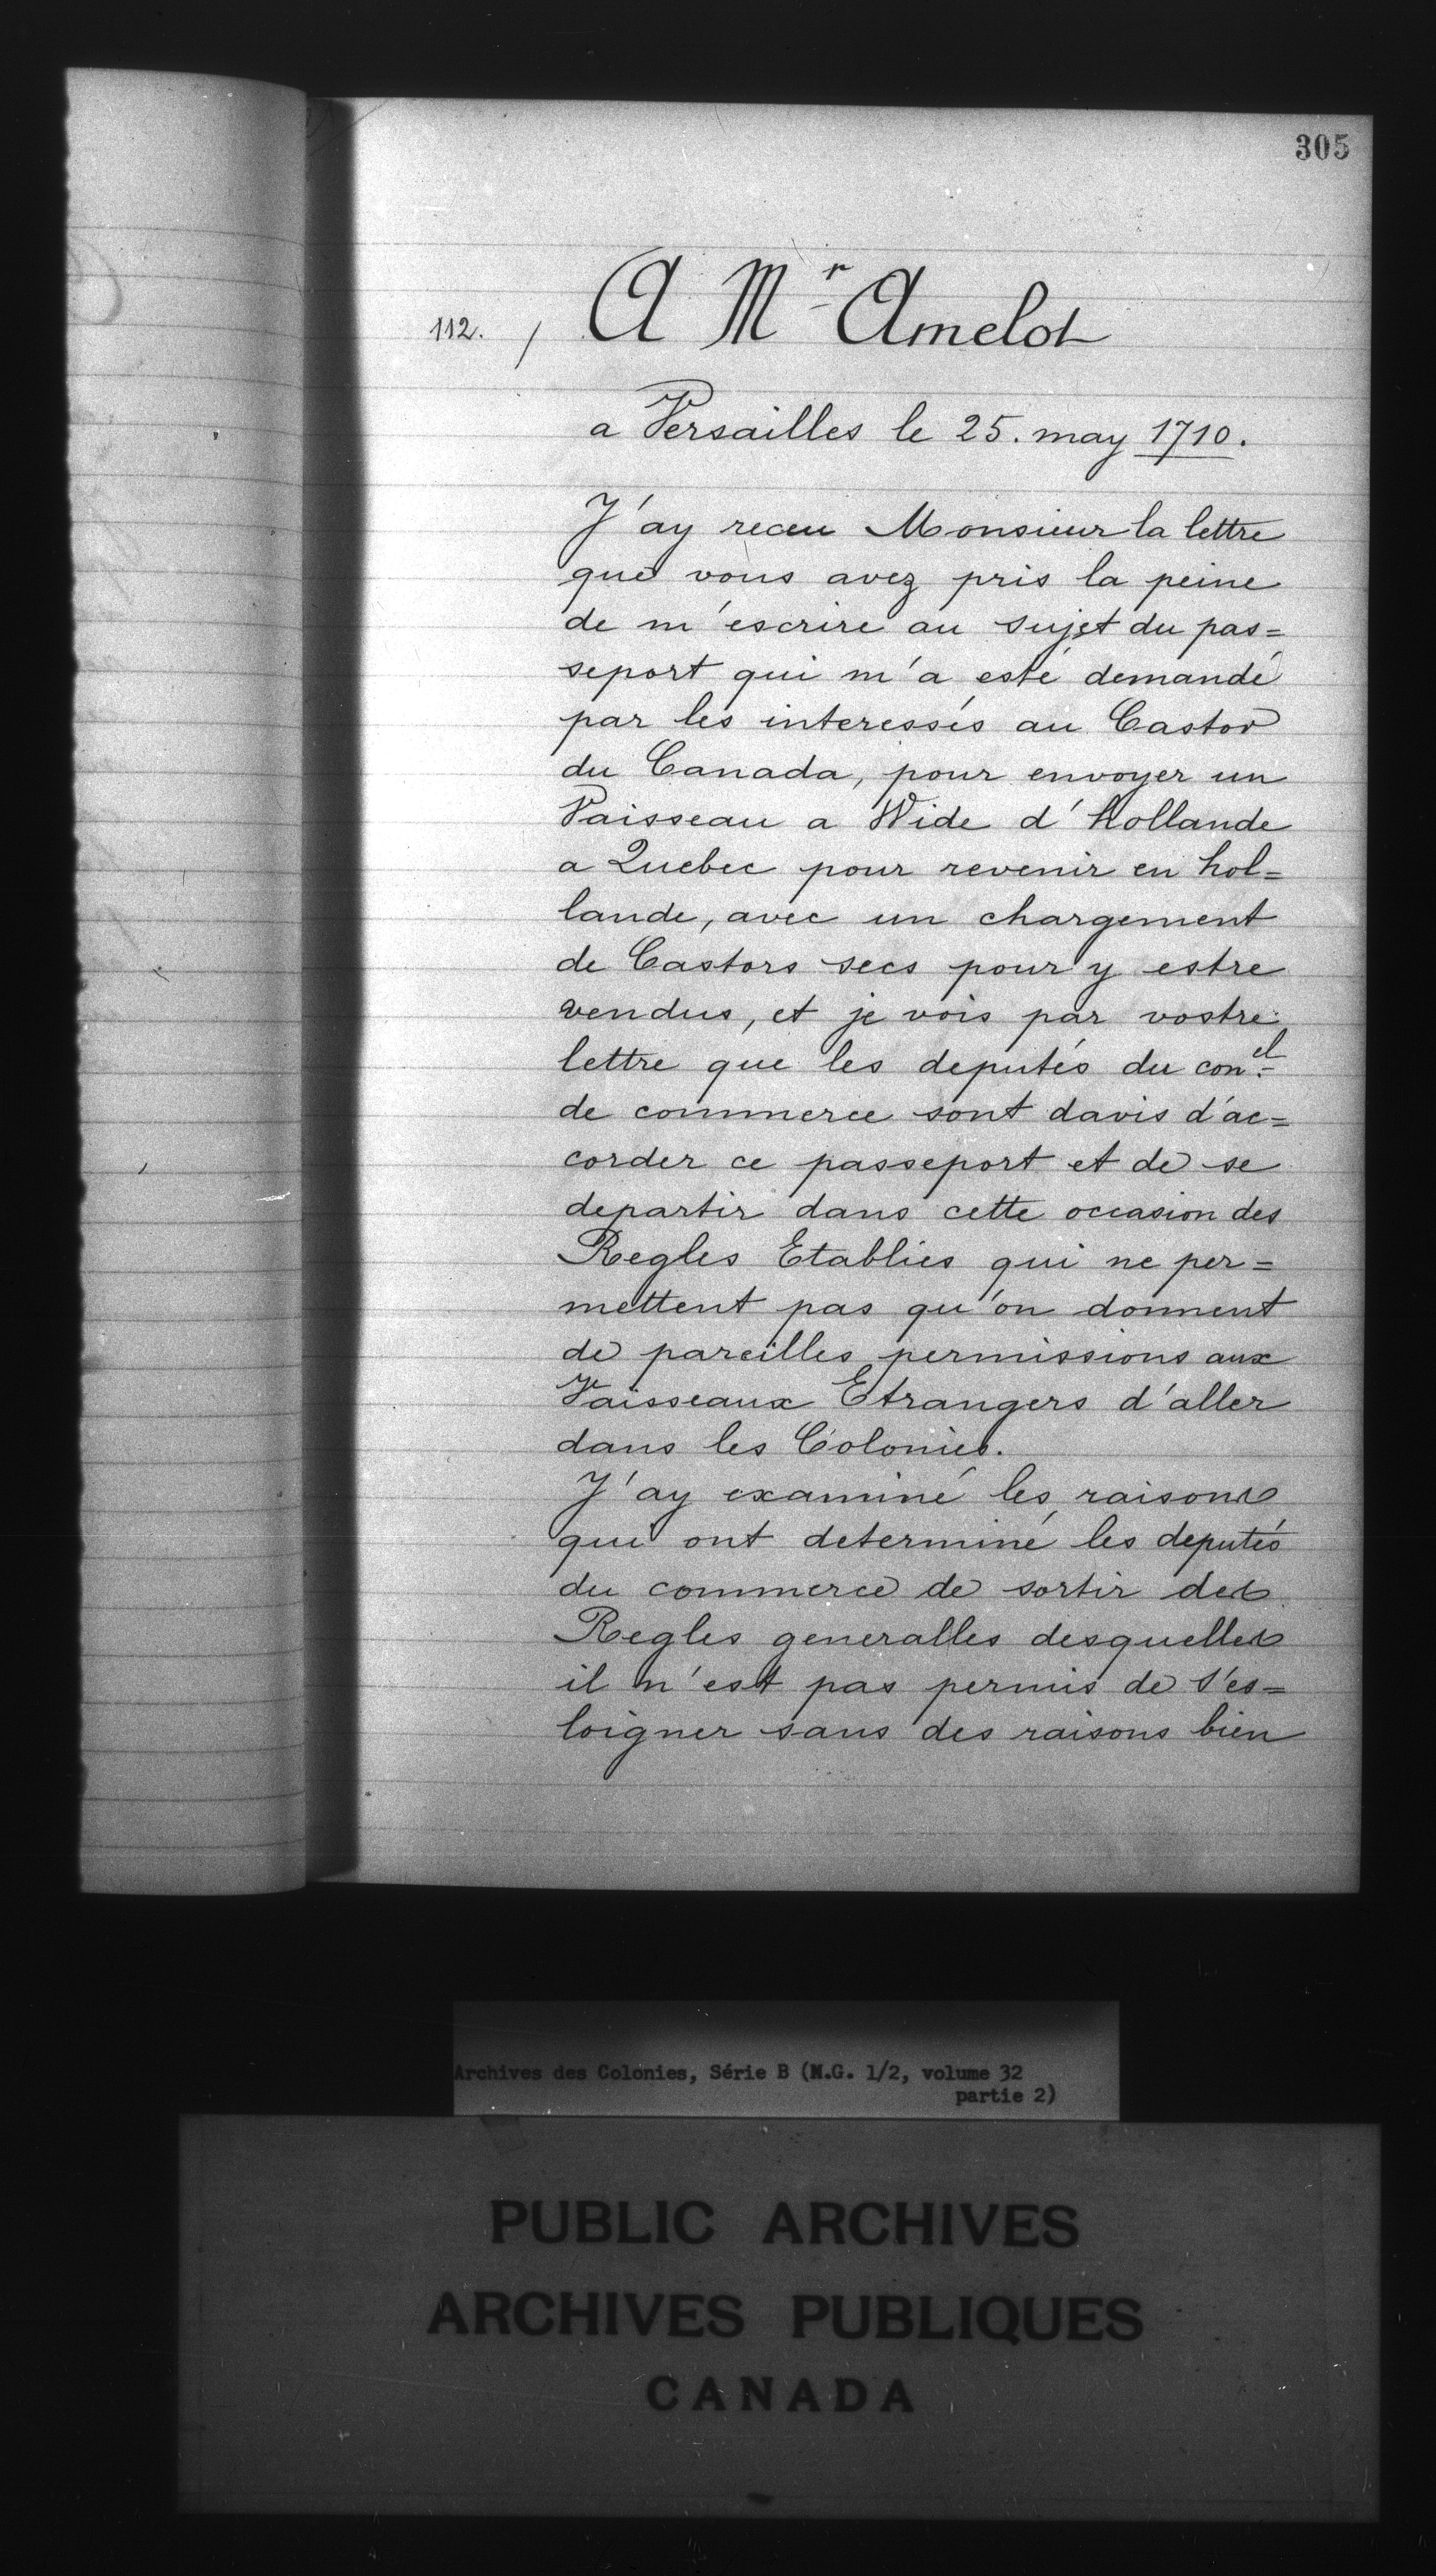 305
112. / A M.r Amelot
a Versailles le 25. may 1710.
J'ay receu Monsieur la lettre
que vous avez pris la peine
de m'escrire au sujet du pas=
seport qui m'a esté demandé
par les interessés au Castor
du Canada, pour envoyer un
Vaisseau a Wide d'hollande
a Quebec pour revenir en hol=
lande, avec un chargement
de Castors secs pour y estre
vendus, et je vois par vostre
lettre que les deputés du con.el
de commerce sont davis d'ac=
corder ce passeport et de se
departir dans cette occasion des
Regles Etablies qui ne per=
mettent pas qu'on donnent
de pareilles permissions aux
Vaisseaux Etrangers d'aller
dans les Colonies.
J'ay examiné les raisons
qui ont determiné les deputés
du commerce de sortir des
Regles generalles desquelles
il n'est pas permis de s'es=
loigner sans des raisons bien
Archives des Colonies, Série B (M.G. 1/2, volume 32
partie 2)
PUBLIC ARCHIVES
ARCHIVES PUBLIQUES
CANADA